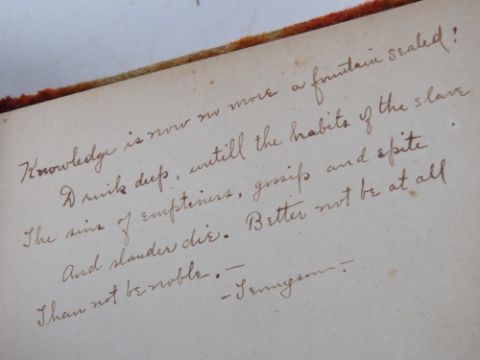 Knowledge is now no more a fountain sealed!
Drink deep, untill the habits of the slave
The sins of emptiness, gossip and spite
And slander die. Better not be at all
Than not be noble. —
- Tennyson -